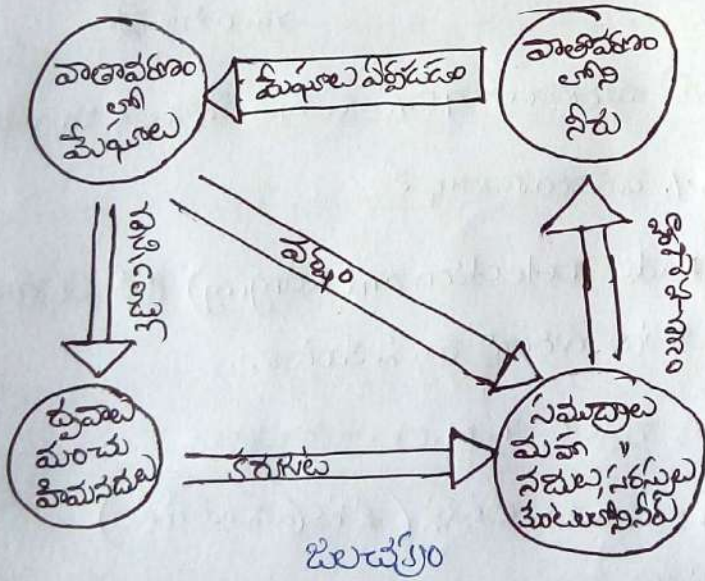 వాతావరణం
లో
మేఘాలు
మేఘాలు ఏర్పడడం
వాతావరణం
లోని
నీరు
వడగండ్లు
వర్షం
బాష్పీభవనం
ధృవాలు
మంచు
హిమనదులు
కరుగుట
సముద్రాలు
మహా "
నదులు, సరస్సులు
కుంటలలోని నీరు
జలచక్రం